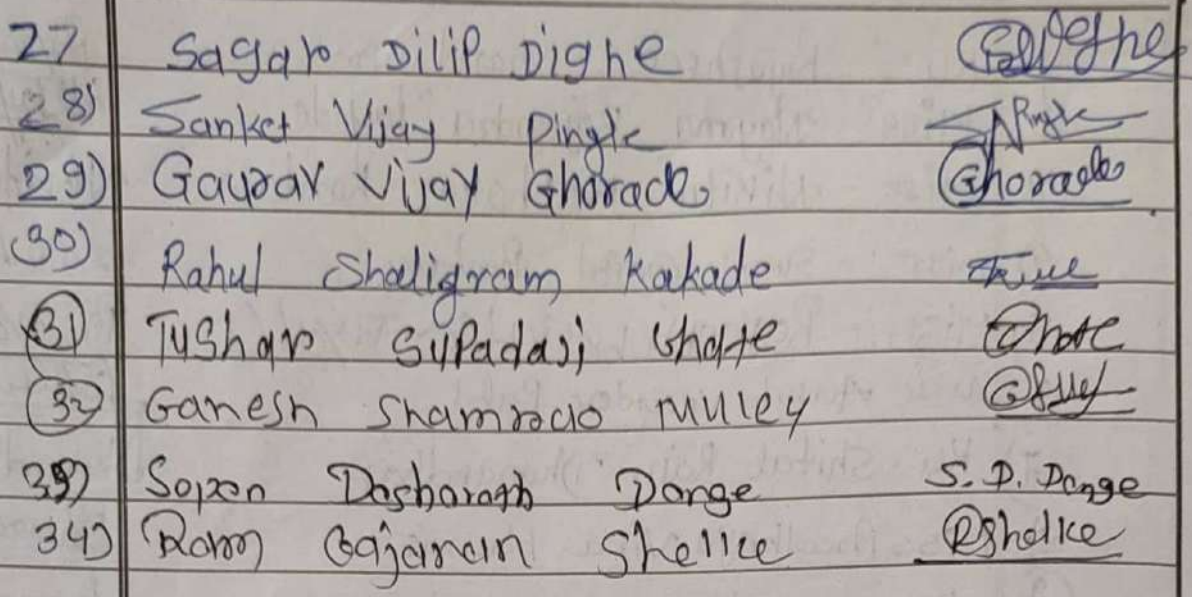 27 Sagar Dilip Dighe
28) Sanket Vijay Pingle Pingle
29) Gaurav Vijay Ghorade Ghorade
30) Rahul Shaligram Kakade
31) Tushar Supadaji Ghate
32) Ganesh Shamrao Muley
33) Sopan Dasharath Dange S. D. Dange
34) Ram Gajanan Shelke RShelke